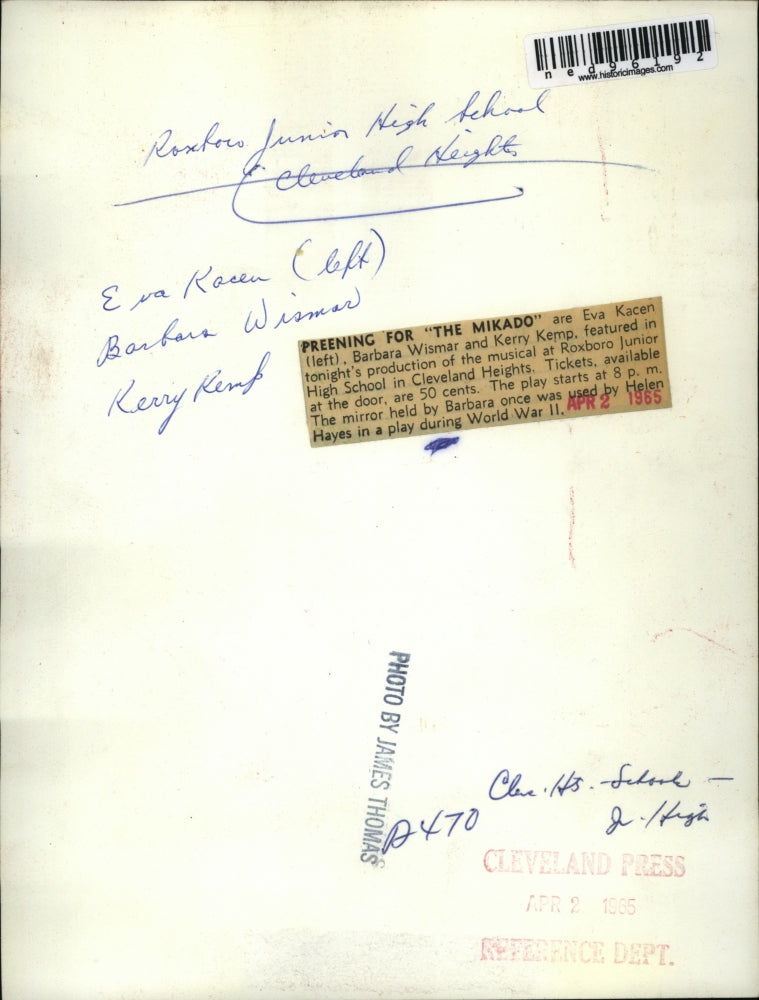 ned96192
www.historicimages.com
Roxboro Junior High School
Cleveland Heights
Eva Kacen (left)
Barbara Wismar
Kerry Kemp
PREENING FOR "THE MIKADO" are Eva Kacen
(left), Barbara Wismar and Kerry Kemp, featured in
tonight's production of the musical at Roxboro Junior
High School in Cleveland Heights. Tickets, available
at the door, are 50 cents. The play starts at 8 p. m.
The mirror held by Barbara once was used by Helen
Hayes in a play during World War II.
APR 2 1965
PHOTO BY JAMES THOMAS
Cleve. Hts. - Schools -
Jr. High
P470
CLEVELAND PRESS
APR 2 1965
REFERENCE DEPT.